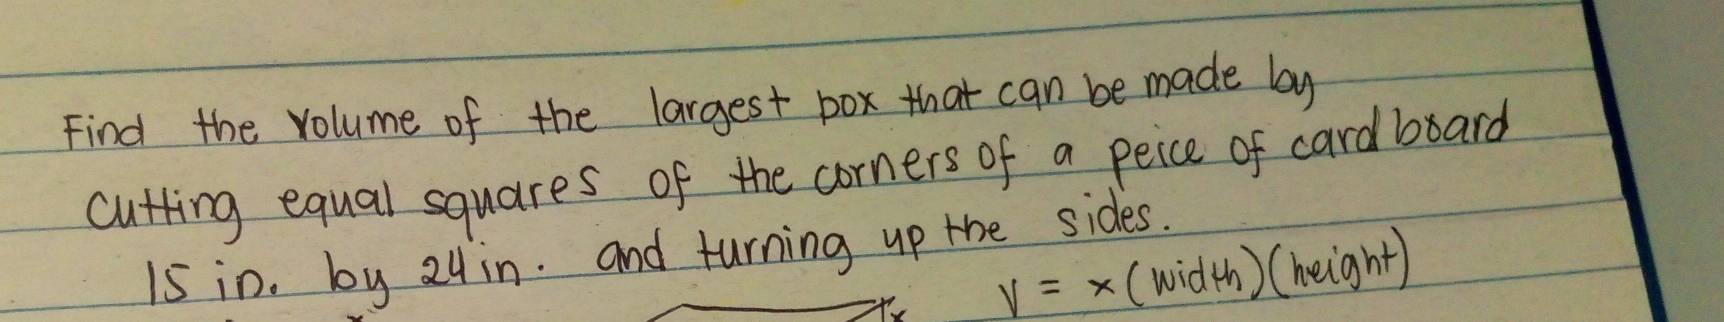 Find the volume of the largest box that can be made by
cutting equal squares of the corners of a peice of card board
15 in. by 24 in. and turning up the sides.
V = x (width)(height)
x
x